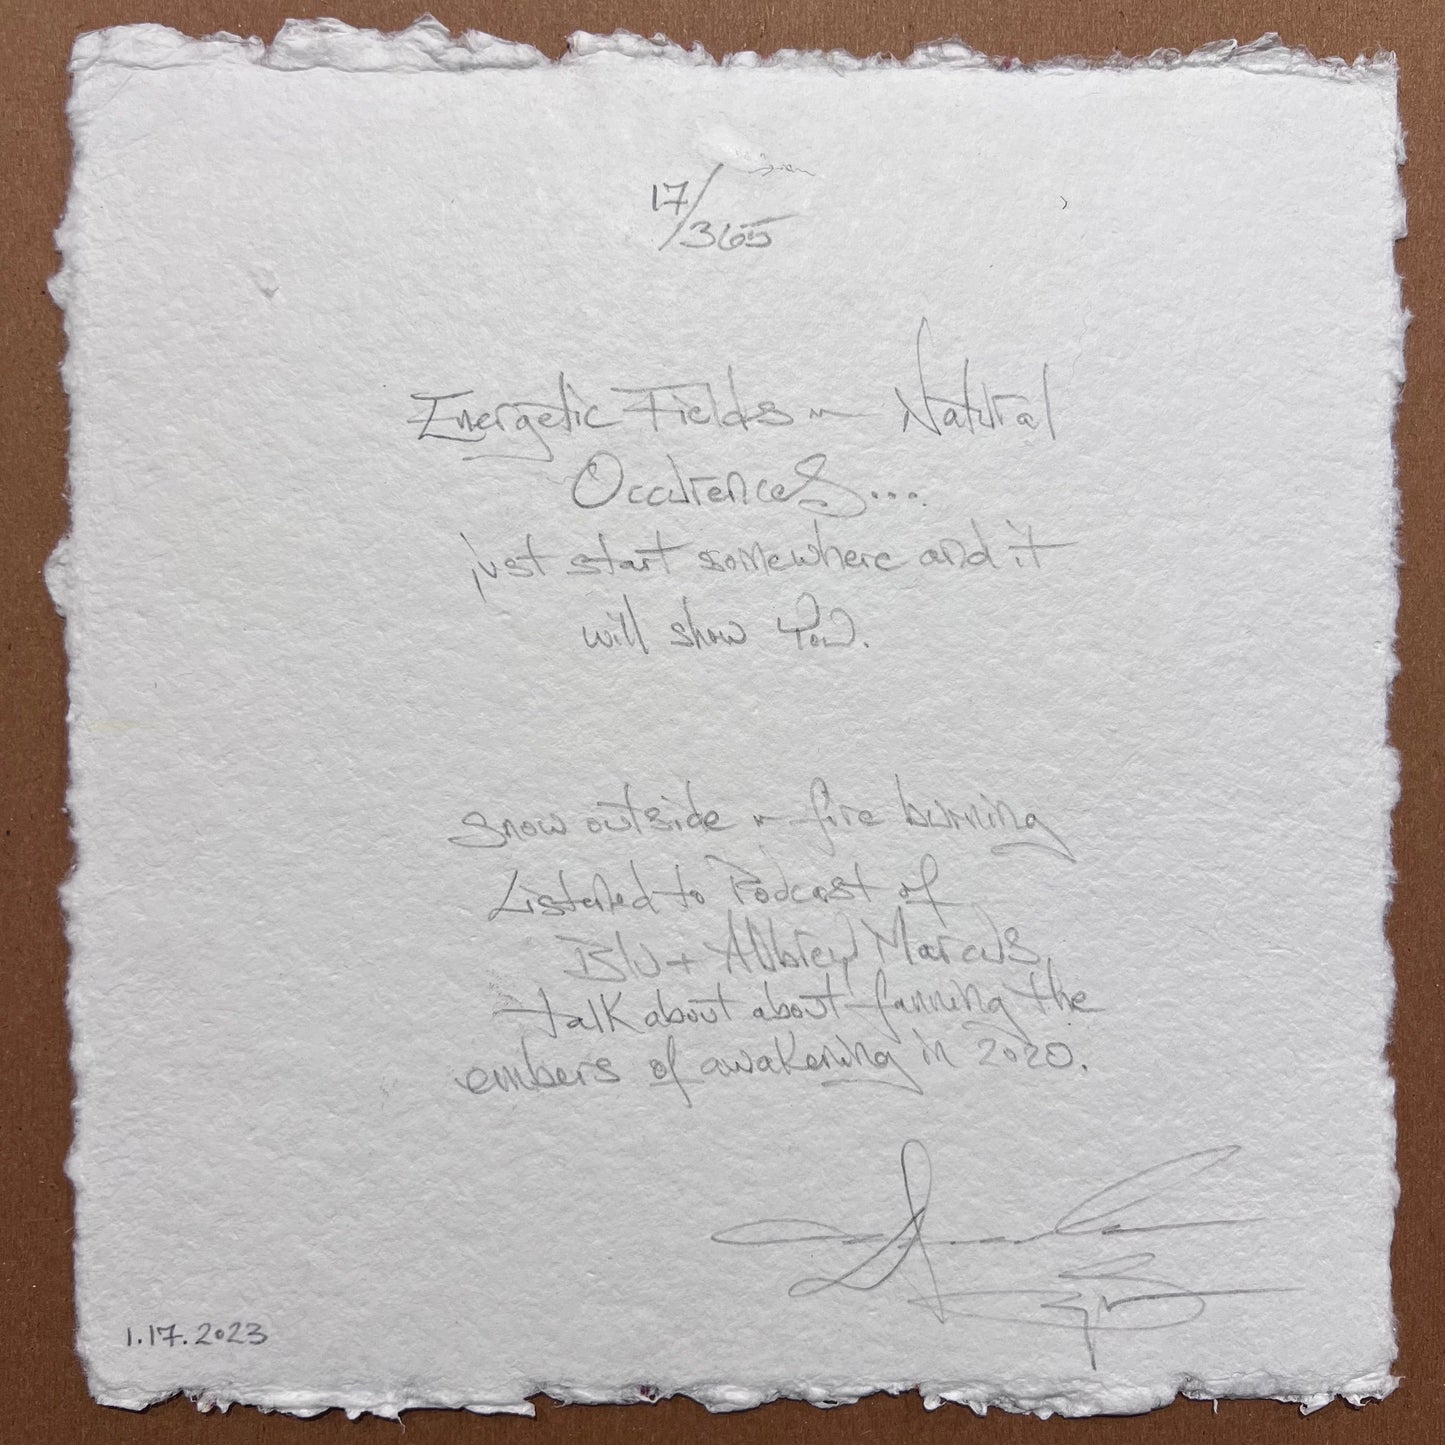 17/365
Energetic Fields ~ Natural
Occurences....
just start somewhere and it
will show You.
snow outside ~ fire burning
Listened to Podcast of
Blu + Aubrey Marcus
talk about about fanning the
embers of awakening in 2020.
1.17.2023